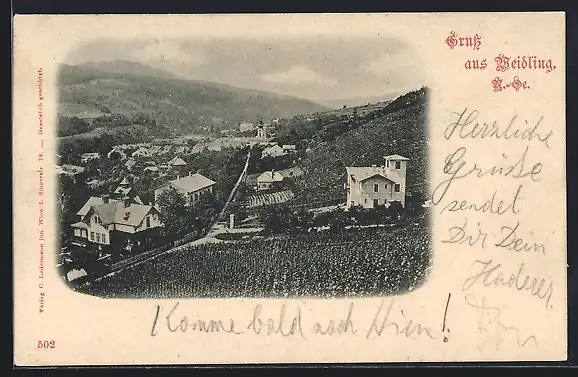 Gruß
aus Weidling.
N.-Oe.
Herzliche
Grüsse
sendet
Dir Dein
Haderer
Komme bald nach Wien!
Verlag C. Ledermann jun. Wien I. Singerstr. 7A. — Gesetzlich geschützt.
502